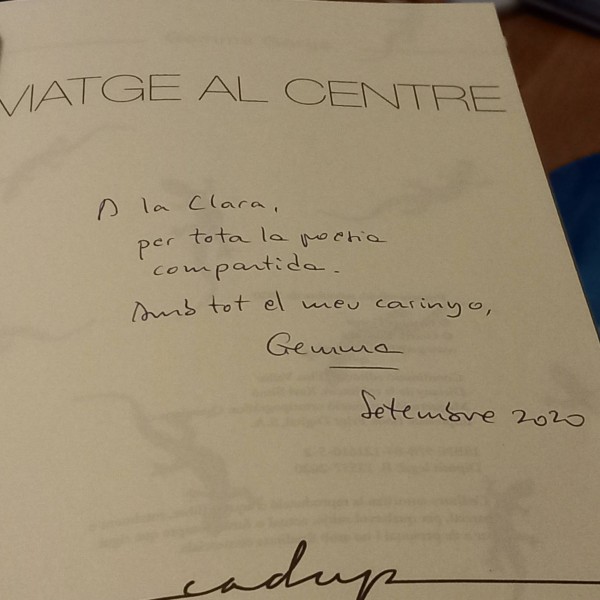 VIATGE AL CENTRE
A la Clara,
per tota la poesia
compartida.
Amb tot el meu carinyo,
Gemma
Setembre 2020
cadup